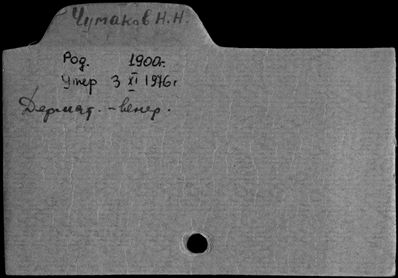 Чумаков Н.Н.
Род. 1900г.
Умер 3 XI 1976г
Дермат. - венер.